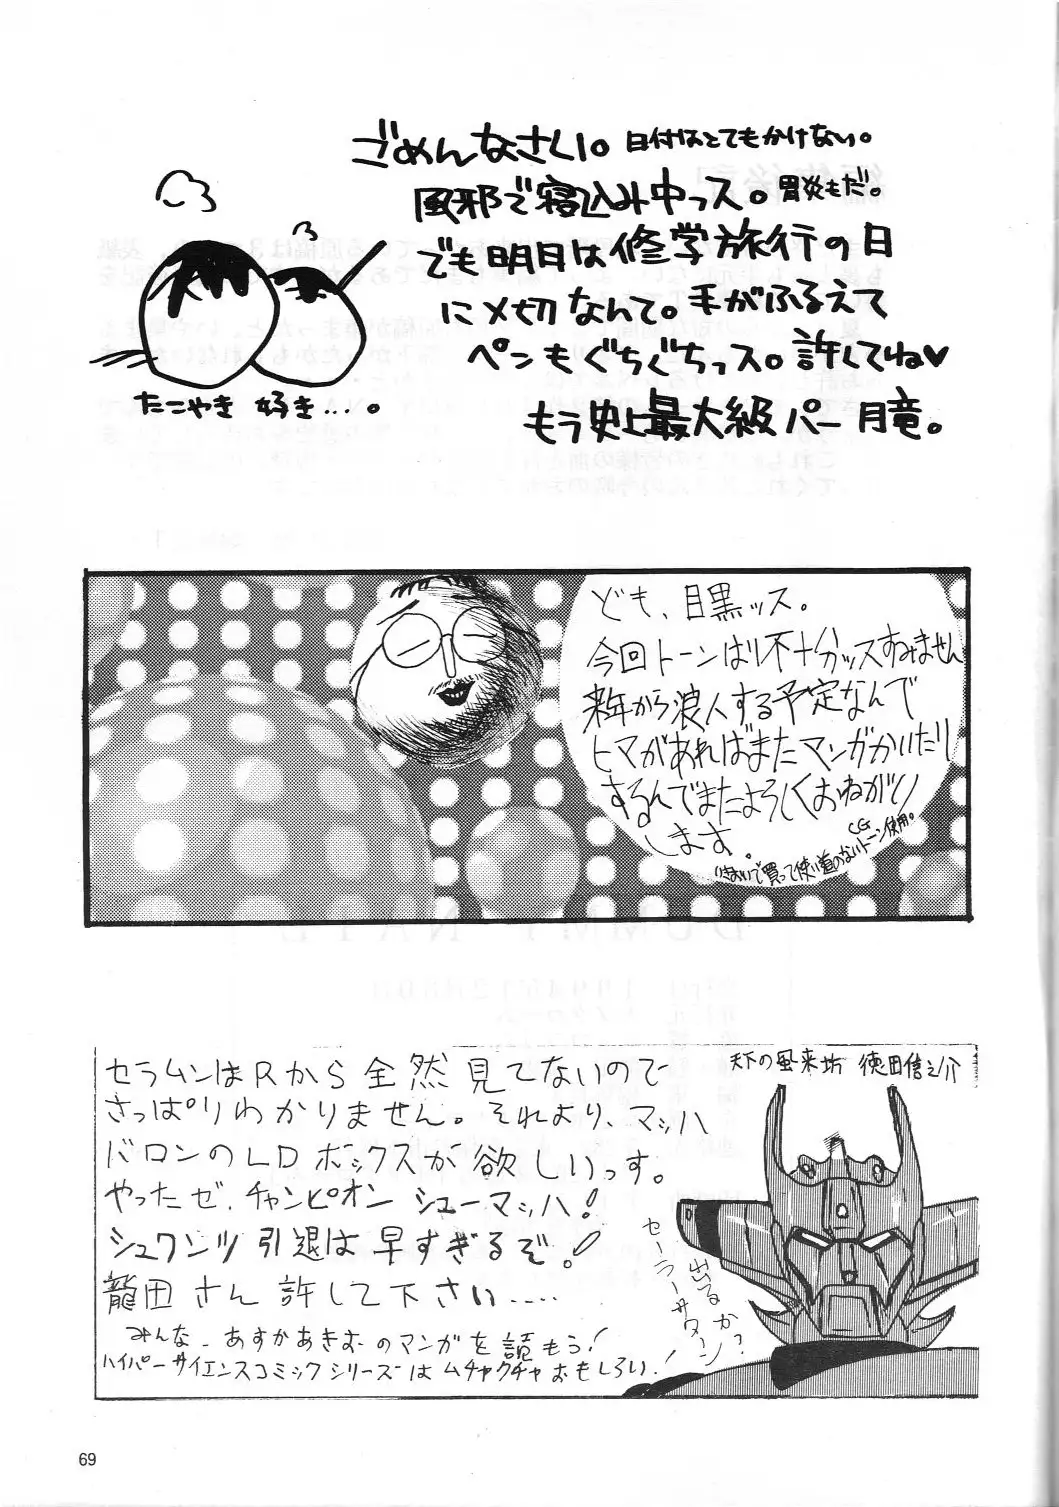 ごめんなさい。日付はとてもかけない。
風邪で寝込み中っス。胃炎もだ。
でも明日は修学旅行の日
に〆切なんて。手がふるえて
ペンもぐちぐちっス。許してね♥
もう史上最大級パー 月竜。
たこやき 好き…。
ども、目黒ッス。
今回トーンはり不十分ッスすみません
来年から浪人する予定なんで
ヒマがあればまたマンガかいたり
するんでまたよろしくおねがい
します。
CG
いきおいで買って使い道のないトーン使用。
天下の風来坊 徳田信之介
セラムンはRから全然見てないので
さっぱりわかりません。それより、マッハ
バロンのLDボックスが欲しいっす。
やったぜ、チャンピオン シューマッハ!
シュワンツ引退は早すぎるぞ!
龍田さん許して下さい……
みんな、あすかあきおのマンガを読もう!
ハイパーサイエンスコミックシリーズはムチャクチャおもしろい!
出るか?
セーラーサターン
69